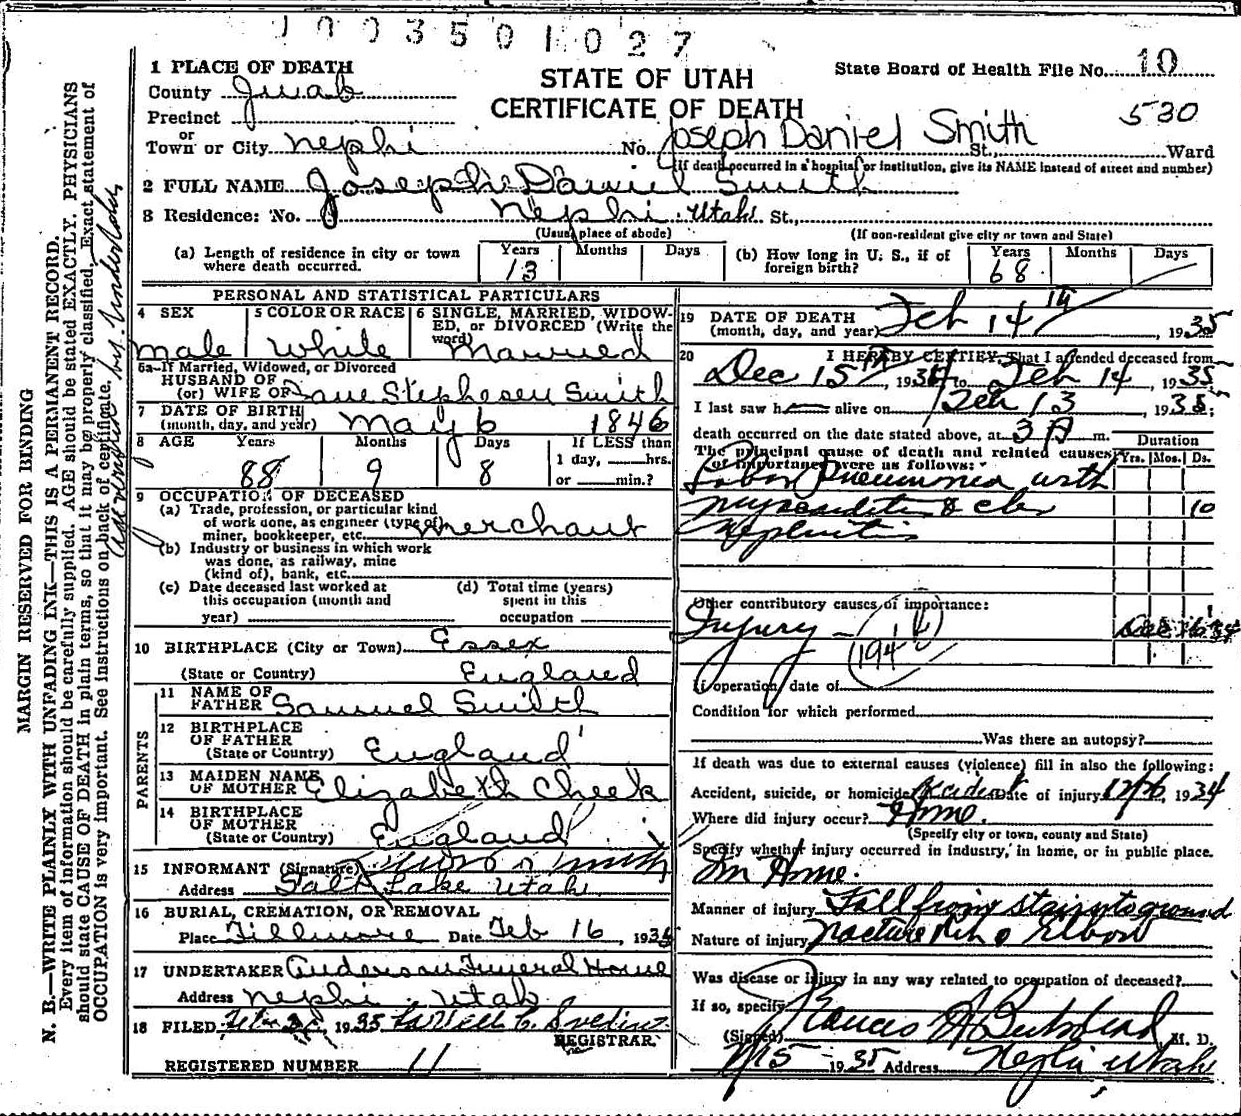 1003501027
1 PLACE OF DEATH
County Juab
Precinct
or
Town or City Nephi
STATE OF UTAH
CERTIFICATE OF DEATH
State Board of Health File No. 10
530
No. Joseph Daniel Smith St., Ward
(If death occurred in a hospital or institution, give its NAME instead of street and number)
2 FULL NAME Joseph Daniel Smith
3 Residence: No. Nephi Utah St.,
(Usual place of abode) (If non-resident give city or town and State)
(a) Length of residence in city or town where death occurred. Years 13 Months Days
(b) How long in U. S., if of foreign birth? Years 68 Months Days
PERSONAL AND STATISTICAL PARTICULARS
4 SEX male
5 COLOR OR RACE White
6 SINGLE, MARRIED, WIDOWED, or DIVORCED (Write the word) Married
6a—If Married, Widowed, or Divorced
HUSBAND OF
(or) WIFE OF Jane Stephesen Smith
7 DATE OF BIRTH
(month, day, and year) May 6 1846
8 AGE Years 88 Months 9 Days 8 If LESS than
1 day, hrs.
or min.?
9 OCCUPATION OF DECEASED
(a) Trade, profession, or particular kind
of work done, as engineer (type of)
miner, bookkeeper, etc. Merchant
(b) Industry or business in which work
was done, as railway, mine
(kind of), bank, etc.
(c) Date deceased last worked at
this occupation (month and
year)
(d) Total time (years)
spent in this
occupation
10 BIRTHPLACE (City or Town) Essex
(State or Country) England
PARENTS
11 NAME OF
FATHER Samuel Smith
12 BIRTHPLACE
OF FATHER
(State or Country) England
13 MAIDEN NAME
OF MOTHER Elizabeth Cheek
14 BIRTHPLACE
OF MOTHER
(State or Country) England
15 INFORMANT (Signature) Smith
Address Salt Lake Utah
16 BURIAL, CREMATION, OR REMOVAL
Place Fillmore Date Feb 16, 1935
17 UNDERTAKER Anderson Funeral Home
Address Nephi Utah
18 FILED 1935
REGISTRAR
REGISTERED NUMBER 11
19 DATE OF DEATH
(month, day, and year) Feb 14, 1935
20 I HEREBY CERTIFY, That I attended deceased from
Dec 15, 1934 to Feb 14, 1935
I last saw h alive on Feb 13, 1935;
death occurred on the date stated above, at 3 A m.
The principal cause of death and related causes
of importance were as follows:
Duration
Yrs. Mos. Ds.
Lobar Pneumonia with
Myocarditis & 10
Nephritis
Other contributory causes of importance:
Injury Dec 16 34
(194
If operation, date of
Condition for which performed
Was there an autopsy?
If death was due to external causes (violence) fill in also the following:
Accident, suicide, or homicide Accident Date of injury 1934
Where did injury occur? Home.
(Specify city or town, county and State)
Specify whether injury occurred in industry, in home, or in public place.
In Home.
Manner of injury Fall from stairs to ground
Nature of injury Fracture Elbow
Was disease or injury in any way related to occupation of deceased?
If so, specify
(Signed) M. D.
1935 Address Nephi Utah
MARGIN RESERVED FOR BINDING
N. B.—WRITE PLAINLY WITH UNFADING INK—THIS IS A PERMANENT RECORD.
Every item of information should be carefully supplied. AGE should be stated EXACTLY. PHYSICIANS
should state CAUSE OF DEATH in plain terms, so that it may be properly classified. Exact statement of
OCCUPATION is very important. See instructions on back of certificate.